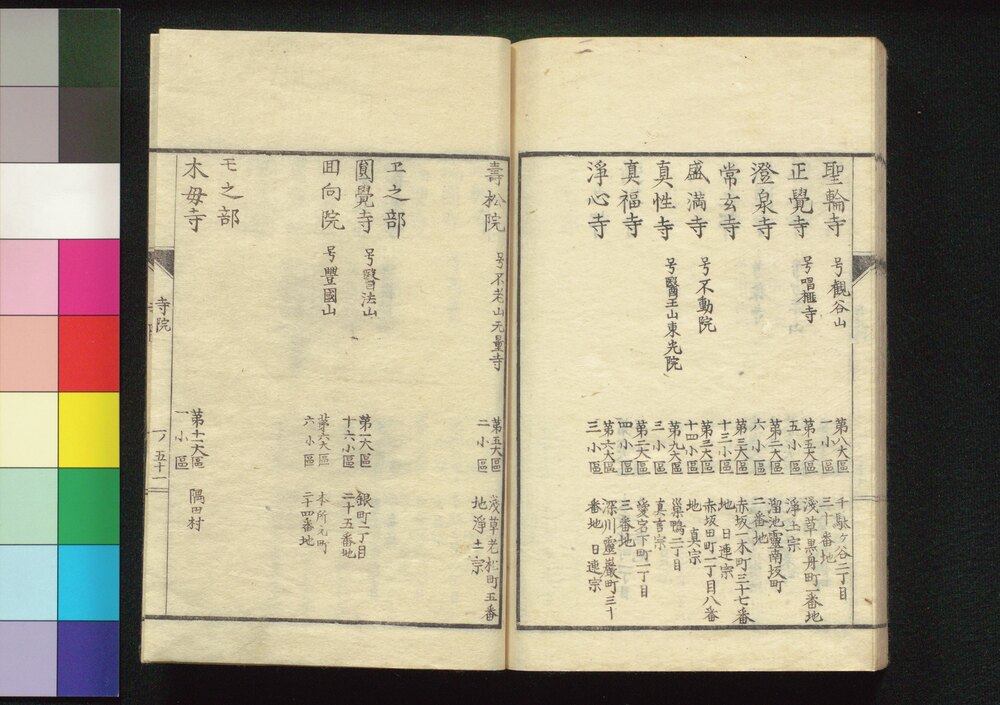 聖輪寺 号觀谷山 第八大區一小區 千駄ヶ谷二丁目三十番地
正覺寺 号唱榧寺 第五大區五小區 淺草黒舟町一番地淨土宗
澄泉寺 第二大區六小區 溜池靈南坂町二番地
常玄寺 第三大區十三小區 赤坂一木町三十七番地 日連宗
盛満寺 号不動院 第三大區十四小區 赤坂田町一丁目八番地 真宗
真性寺 号醫王山東光院 第九大區三小區 巣鴨二丁目真言宗
真福寺 第二大區四小區 愛宕下町一丁目三番地
淨心寺 第六大區三小區 深川靈巖町三十番地 日連宗
壽松院 号不老山无量寺 第五大區二小區 淺草老松町五番地淨土宗
ヱ之部
圓覺寺 号醫法山 第一大區十六小區 銀町二丁目二十五番地
囬向院 号豐國山 第六大區六小區 本所元町二十四番地
モ之部
木毋寺 第十一大區一小區 隅田村
寺院
五十一